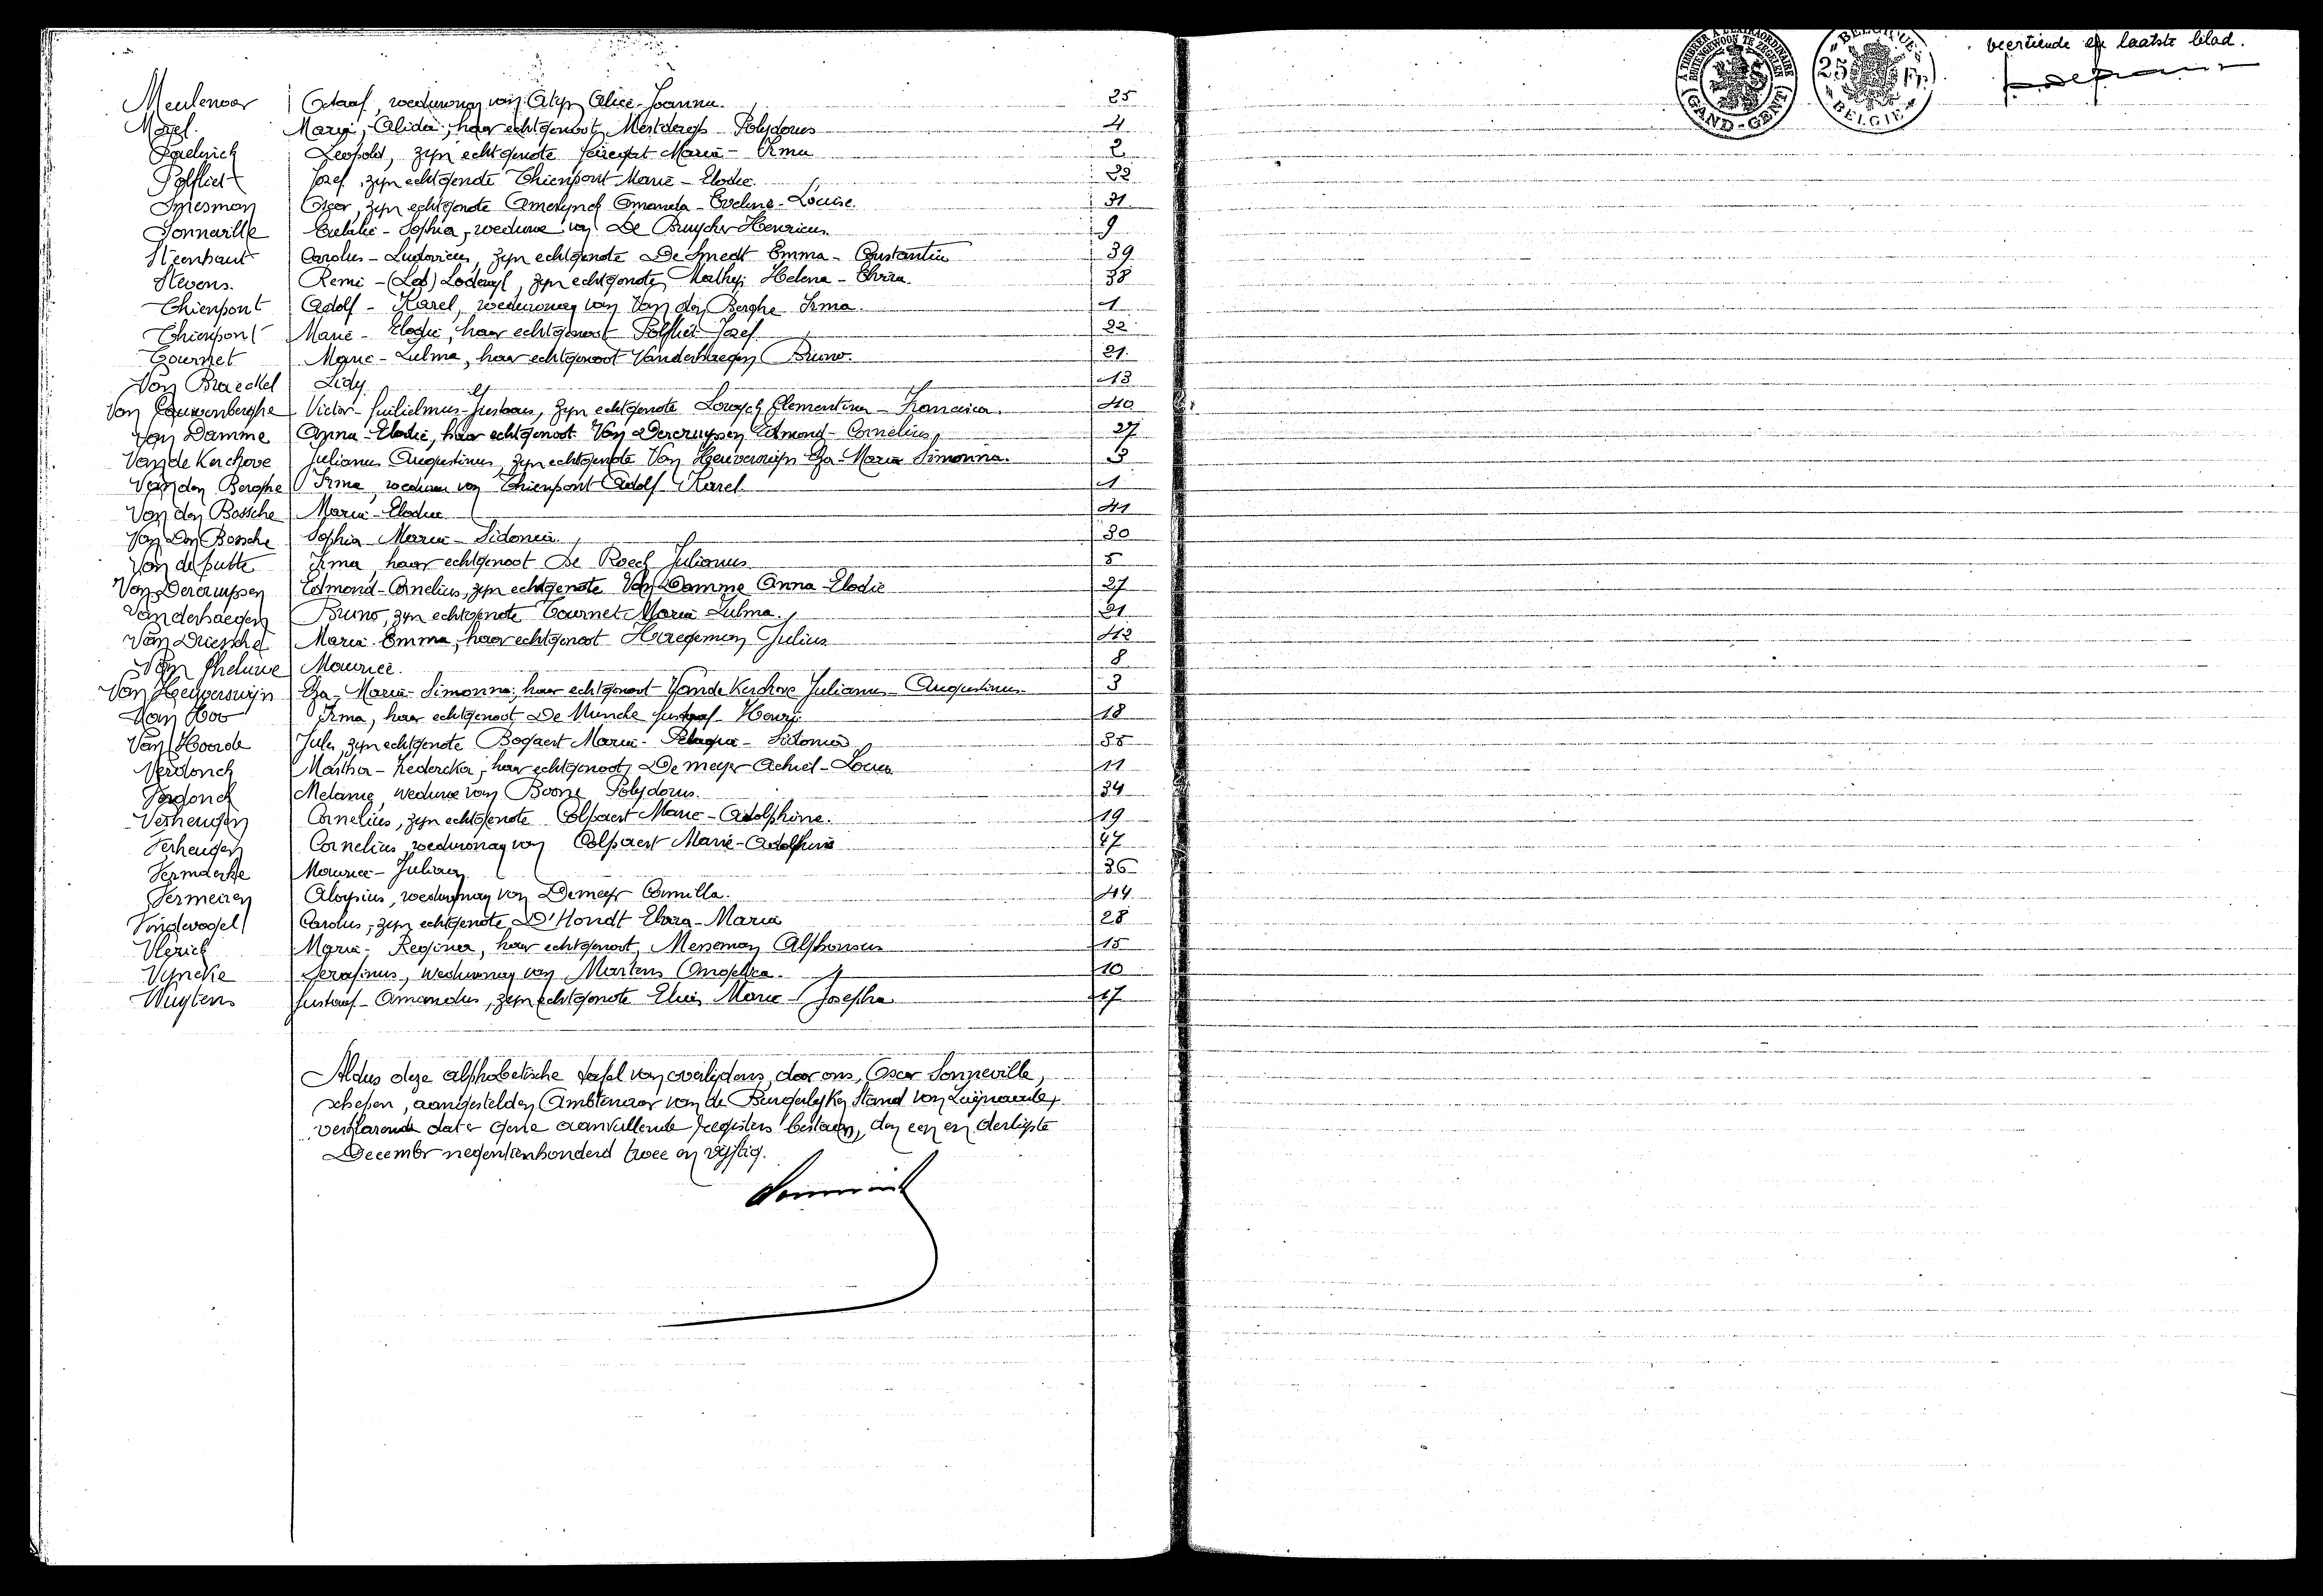 Meulenaer Octaaf, weduwnaar van Alice-Joanna. 25
Morel. Maria-Alida, haar echtgenoot, Mestdagh Polydorus 4
Leopold, zijn echtgenote Maria-Irma 2
Polfliet Jozef, zijn echtgenote Thienpont Marie-Elodie. 22
Oscar, zijn echtgenote Amelynck Amanda-Eveline-Louise 31
Sonneville Eulalie-Sophia, weduwe van De Bruycker Henricus 9
Steenhaut Carolus-Ludovicus, zijn echtgenote De Smedt Emma-Constantia 39
Stevens. Remi-(Led) Lodewyk, zijn echtgenote, Mathys Helena-Elvira 38
Thienpont Adolf-Karel, weduwnaar van Van den Berghe Irma. 1
Thienpont Marie-Elodie, haar echtgenoot Polfliet Jozef 22
Tournet Marie-Zulma, haar echtgenoot Vanderhaegen Bruno. 21
Van Braeckel Lidy 13
Van Cauwenberghe Victor-Guilielmus-Gustaaf, zijn echtgenote Clementina-Francisca. 40
Van Damme Anna-Elodie, haar echtgenoot Van Dercruyssen Edmond-Cornelius 27
Van de Kerchove Julianus Augustinus, zijn echtgenote Van Heuverswijn Eza-Maria Simonna. 3
Van den Berghe Irma, weduwe van Thienpont Adolf Karel 1
Van den Bossche Maria-Elodie 41
Van Den Bossche Sophia Maria-Sidonia 30
Van de putte Irma, haar echtgenoot De Roeck Julianus 5
Van Dercruyssen Edmond-Cornelius, zijn echtgenote Van Damme Anna-Elodie 27
Vanderhaegen Bruno, zijn echtgenote Tournet Maria Zulma. 21
Van Driessche Maria-Emma, haar echtgenoot Haegeman Julius 42
Van Gheluwe Maurice. 8
Van Heuverswijn Eza-Maria-Simonna, haar echtgenoot Van de Kerchove Julianus-Augustinus 3
Van Hoo Irma, haar echtgenoot De Muncke Gustaaf-Henri 18
Van Hoorde Jules, zijn echtgenote Bogaert Maria-Pelagia-Sidonia 35
Verdonck Martha-Frederika, haar echtgenoot, De meyer Achiel-Louis 11
Verdonck Melanie, weduwe van Boone Polydorus. 34
Verheugen Cornelius, zijn echtgenote Colpaert Marie-Adolphine. 19
Verheugen Cornelius, weduwnaar van Colpaert Marie-Adolphine 47
Vermaerke Maurice-Julien 36
Vermeiren Aloysius, weduwnaar van Demeyer Camilla. 44
Vindevogel Carolus, zijn echtgenote D'Hondt Elvira-Maria 28
Vlerick Maria-Regina, haar echtgenoot, Meneman Alphonsus 15
Vyncke Serafinus, weduwnaar van Martens Angelica. 10
Wuytens Gustaaf-Amandus, zijn echtgenote Marie Josepha 17
Aldus deze alphabetische tafel van overlijdens, door ons, Oscar Sonneville,
schepen, aangestelden Ambtenaar van de Burgerlyken Stand van Zwijnaarde,
verklarende dat er gene aanvullende registers bestaan, den een en dertigste
December negentienhonderd twee en vijftig.
À TIMBRER À L'EXTRAORDINAIRE
BUITENGEWOON TE ZEGELEN
(GAND-GENT)
BELGIQUE
25 Fr.
BELGIË
veertiende en laatste blad.